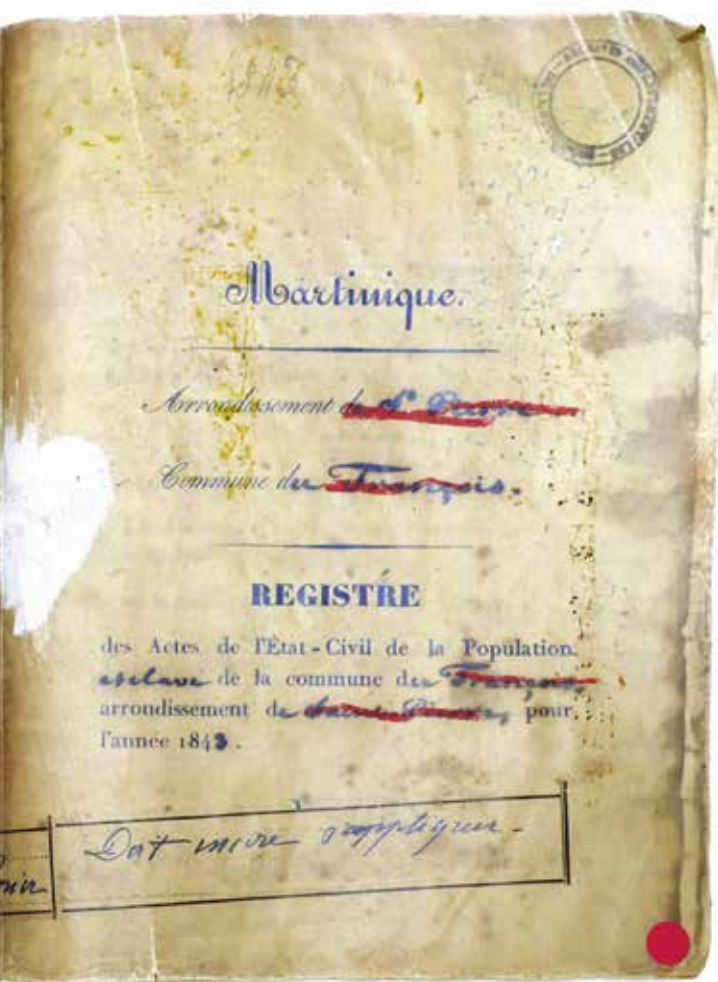 1843
Martinique.
Arrondissement de St Pierre
Commune du François.
REGISTRE
des Actes de l'État-Civil de la Population
esclave de la commune du François,
arrondissement de Saint Pierre, pour
l'année 1843.
Doit encore s'appliquer.